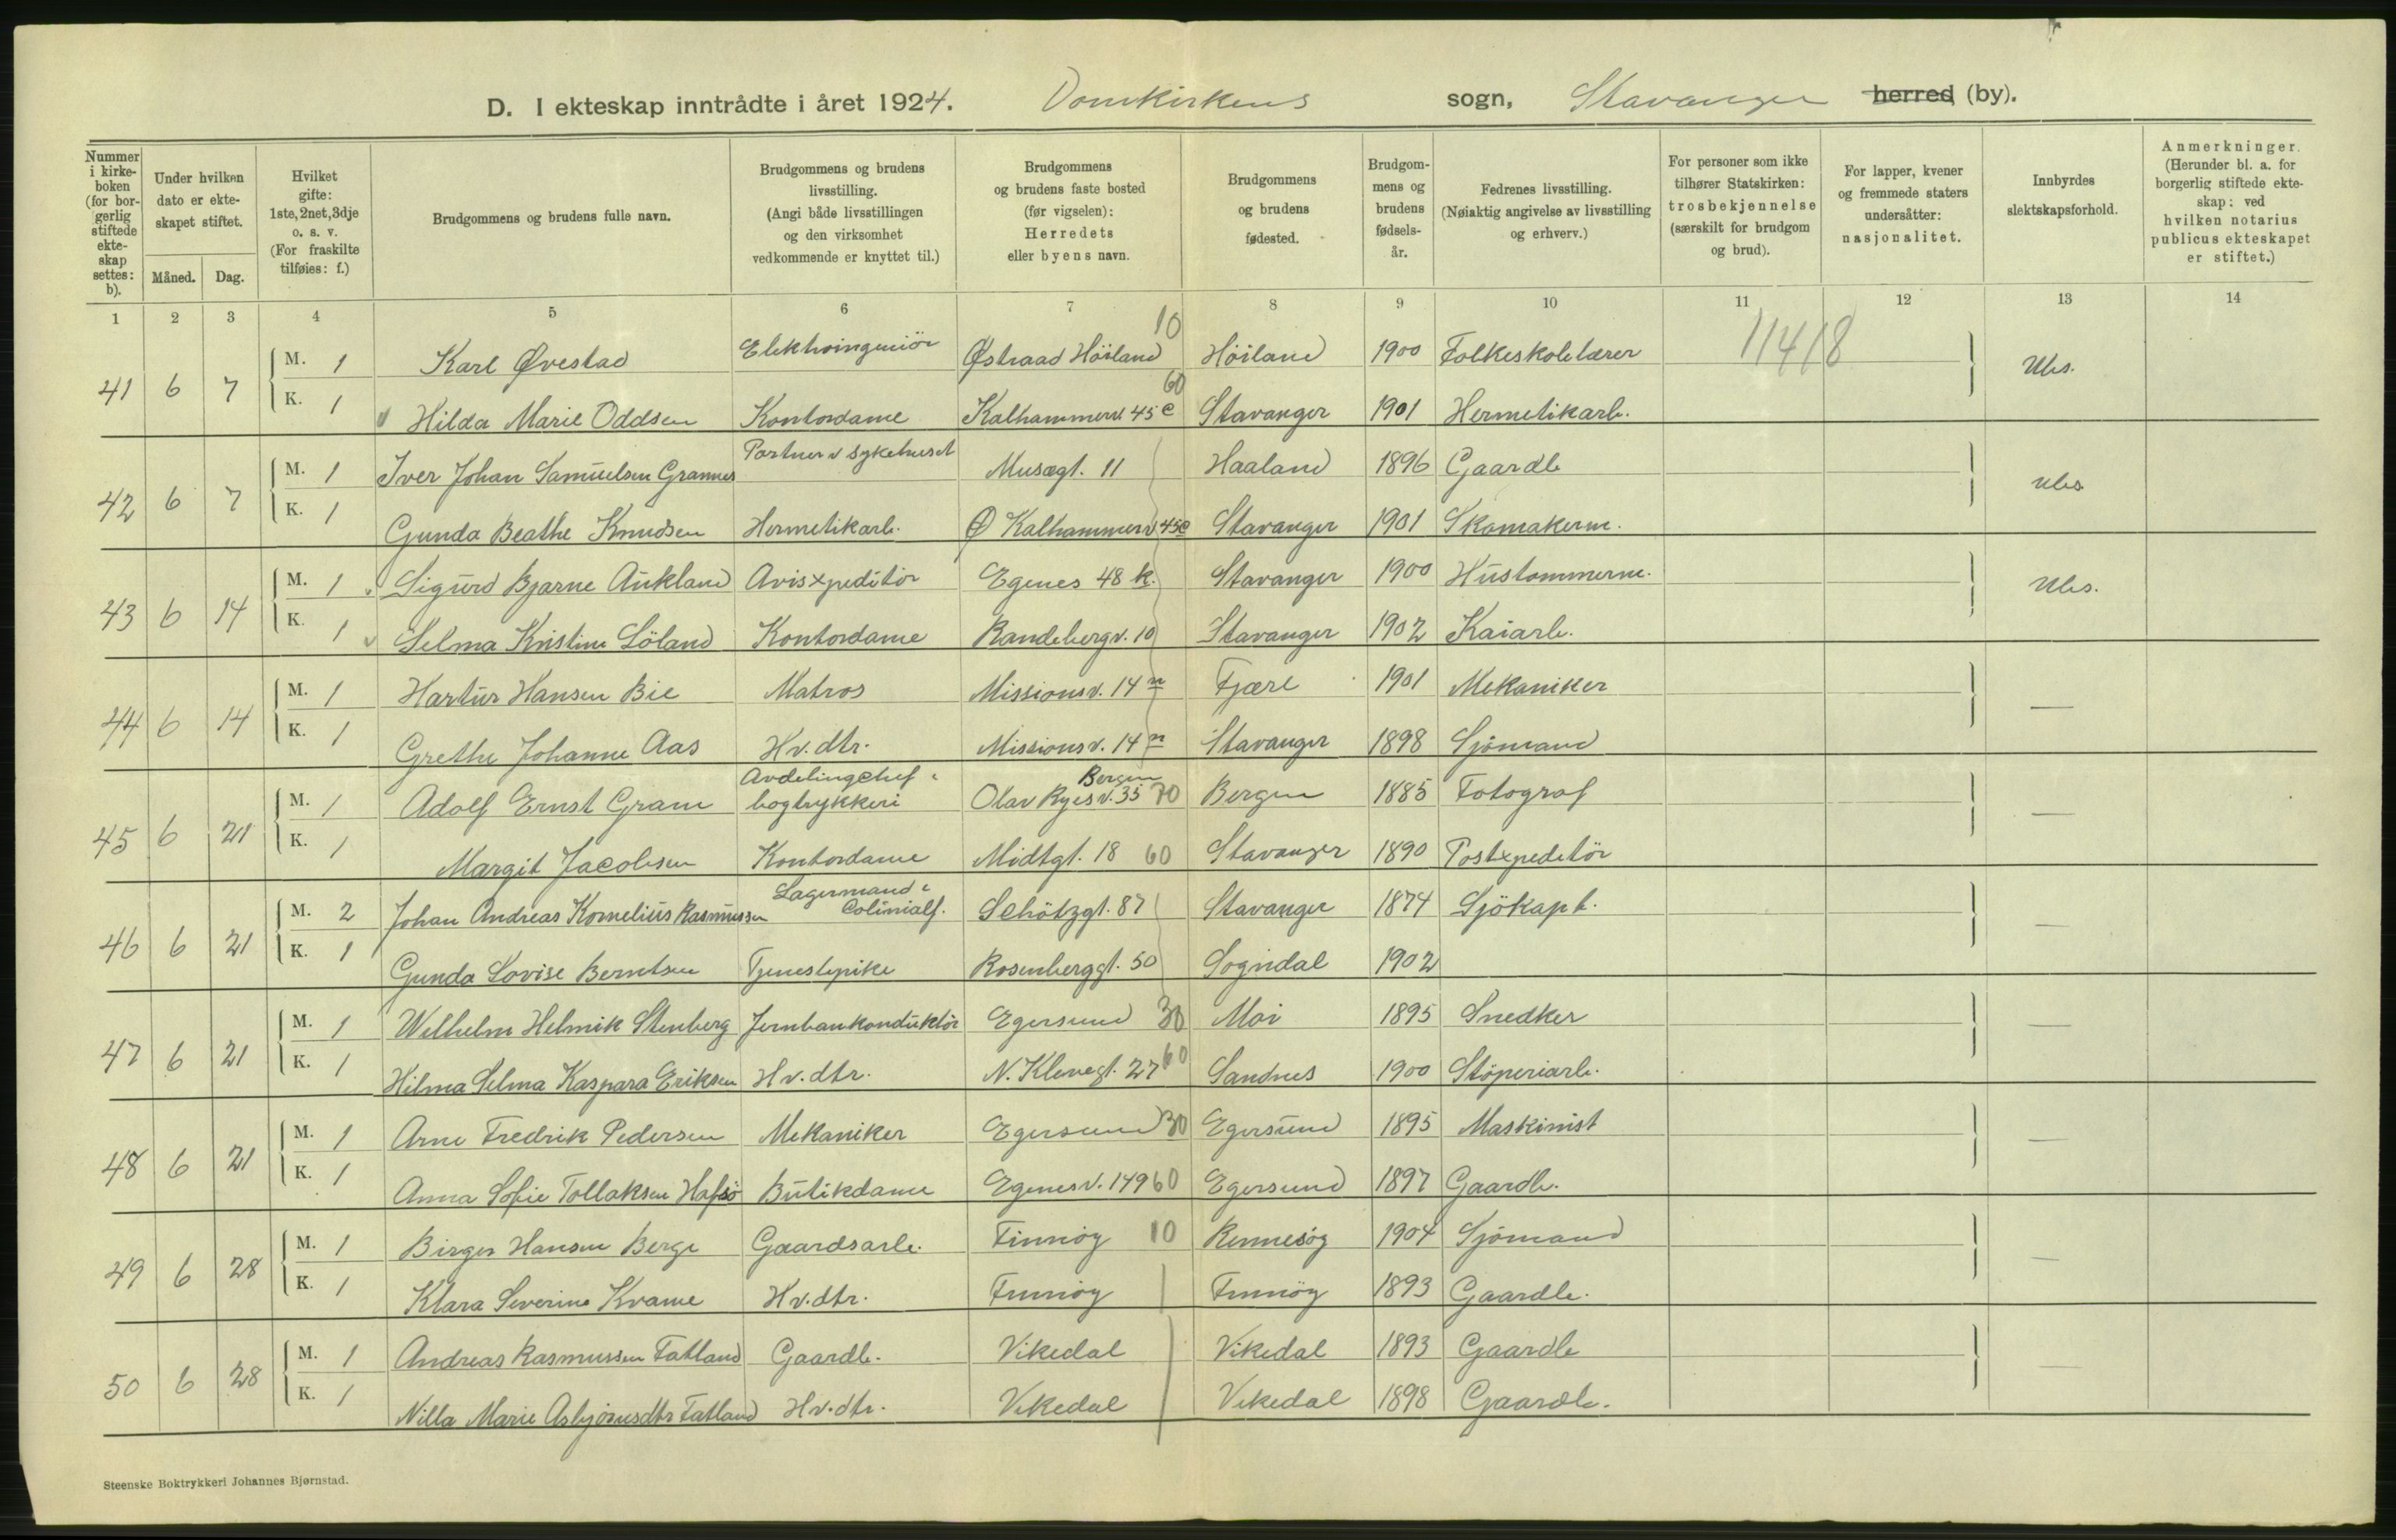 D. I ekteskap inntrådte i året 1924. Domkirkens sogn, Stavanger herred (by).
Nummer i kirkeboken (for borgerlig stiftede ekteskap settes: b).
Under hvilken dato er ekteskapet stiftet.
Måned. Dag.
Hvilket gifte: 1ste, 2net, 3dje o. s. v. (For fraskilte tilføies: f.)
Brudgommens og brudens fulle navn.
Brudgommens og brudens livsstilling. (Angi både livsstillingen og den virksomhet vedkommende er knyttet til.)
Brudgommens og brudens faste bosted (før vigselen): Herredets eller byens navn.
Brudgommens og brudens fødested.
Brudgommens og brudens fødselsår.
Fedrenes livsstilling. (Nøiaktig angivelse av livsstilling og erhverv.)
For personer som ikke tilhører Statskirken: trosbekjennelse (særskilt for brudgom og brud).
For lapper, kvener og fremmede staters undersåtter: nasjonalitet.
Innbyrdes slektskapsforhold.
Anmerkninger. (Herunder bl. a. for borgerlig stiftede ekteskap: ved hvilken notarius publicus ekteskapet er stiftet.)
1 2 3 4 5 6 7 8 9 10 11 12 13 14
41 6 7 M. 1 Karl Øvestad Elektroingeniör Østraad Höiland 10 Höiland 1900 Folkeskolelærer 11418 Ubs.
K. 1 Hilda Marie Oddsen Kontordame Kalhammerv 45 c 60 Stavanger 1901 Hermetikarb.
42 6 7 M. 1 Iver Johan Samuelsen Grannes Portner v sykehuset Musægt. 11 Haaland 1896 Gaardb Ubs.
K. 1 Gunda Beathe Knudsen Hermetikarb. Ø Kalhammerv 45c Stavanger 1901 Skomakerm.
43 6 14 M. 1 Sigurd Bjarne Aukland Avisxpeditör Egenes 48 k. Stavanger 1900 Hustømmerm. Ubs.
K. 1 Selma Kristine Söland Kontordame Randebergv. 10 Stavanger 1902 Kaiarb.
44 6 14 M. 1 Hartur Hansen Bie Matros Missionsv. 14 n Fjære 1901 Mekaniker —
K. 1 Grethe Johanne Aas Hv. dtr. Missionsv. 14 n Stavanger 1898 Sjömand
45 6 21 M. 1 Adolf Ernst Gram Avdelingchef i bogtrykkeri Bergen Olav Ryesv. 35 70 Bergen 1885 Fotograf —
K. 1 Margit Jacobsen Kontordame Midtgt. 18 60 Stavanger 1890 Postxpeditör
46 6 21 M. 2 Johan Andreas Kornelius Rasmussen Lagermand i Colinialf. Schötzgt. 87 Stavanger 1874 Sjökapt. —
K. 1 Gunda Lovise Berntsen Tjenestepike Rosenberggt. 50 Sogndal 1902
47 6 21 M. 1 Wilhelm Helmik Stenberg Jernbankonduktör Egersund 30 Moi 1895 Snedker —
K. 1 Hilma Selma Kaspara Eriksen Hv. dtr. N. Klevegt. 27 60 Sandnes 1900 Stöperiarb.
48 6 21 M. 1 Arne Fredrik Pedersen Mekaniker Egersund 30 Egersund 1895 Maskinist —
K. 1 Anna Sofie Tollaksen Hafsö Butikdame Egenesv. 149 60 Egersund 1897 Gaardb.
49 6 28 M. 1 Birger Hansen Berge Gaardsarb. Finnöy 10 Rennesöy 1904 Sjömand —
K. 1 Klara Severine Kvame Hv. dtr. Finnöy Finnöy 1893 Gaardb.
50 6 28 M. 1 Andreas Rasmussen Tatland Gaardb. Vikedal Vikedal 1893 Gaardb —
K. 1 Nilla Marie Asbjörnsdtr Tatland Hv. dtr. Vikedal Vikedal 1898 Gaardb.
Steenske Boktrykkeri Johannes Bjørnstad.